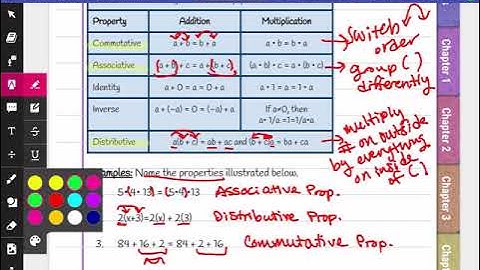 Property Addition Multiplication
Commutative a + b = b + a a • b = b • a
Associative (a + b) + c = a + (b + c) (a • b) • c = a • (b • c)
Identity a + 0 = a = 0 + a a • 1 = a = 1 • a
Inverse a + (-a) = 0 = (-a) + a If a≠0, then
a• 1/a =1=1/a •a
Distributive a(b + c) = ab + ac and (b + c)a = ba + ca
switch
order
group ( )
differently
multiply
# on outside
by everything
on inside
of ( )
Examples: Name the properties illustrated below.
5•(4•13) = (5•4)•13 Associative Prop.
2(x+3)=2(x) + 2(3) Distributive Prop.
3. 84 + 16 + 2 = 84 + 2 + 16 Commutative Prop.
Chapter 1
Chapter 2
Chapter 3
Chapter 4